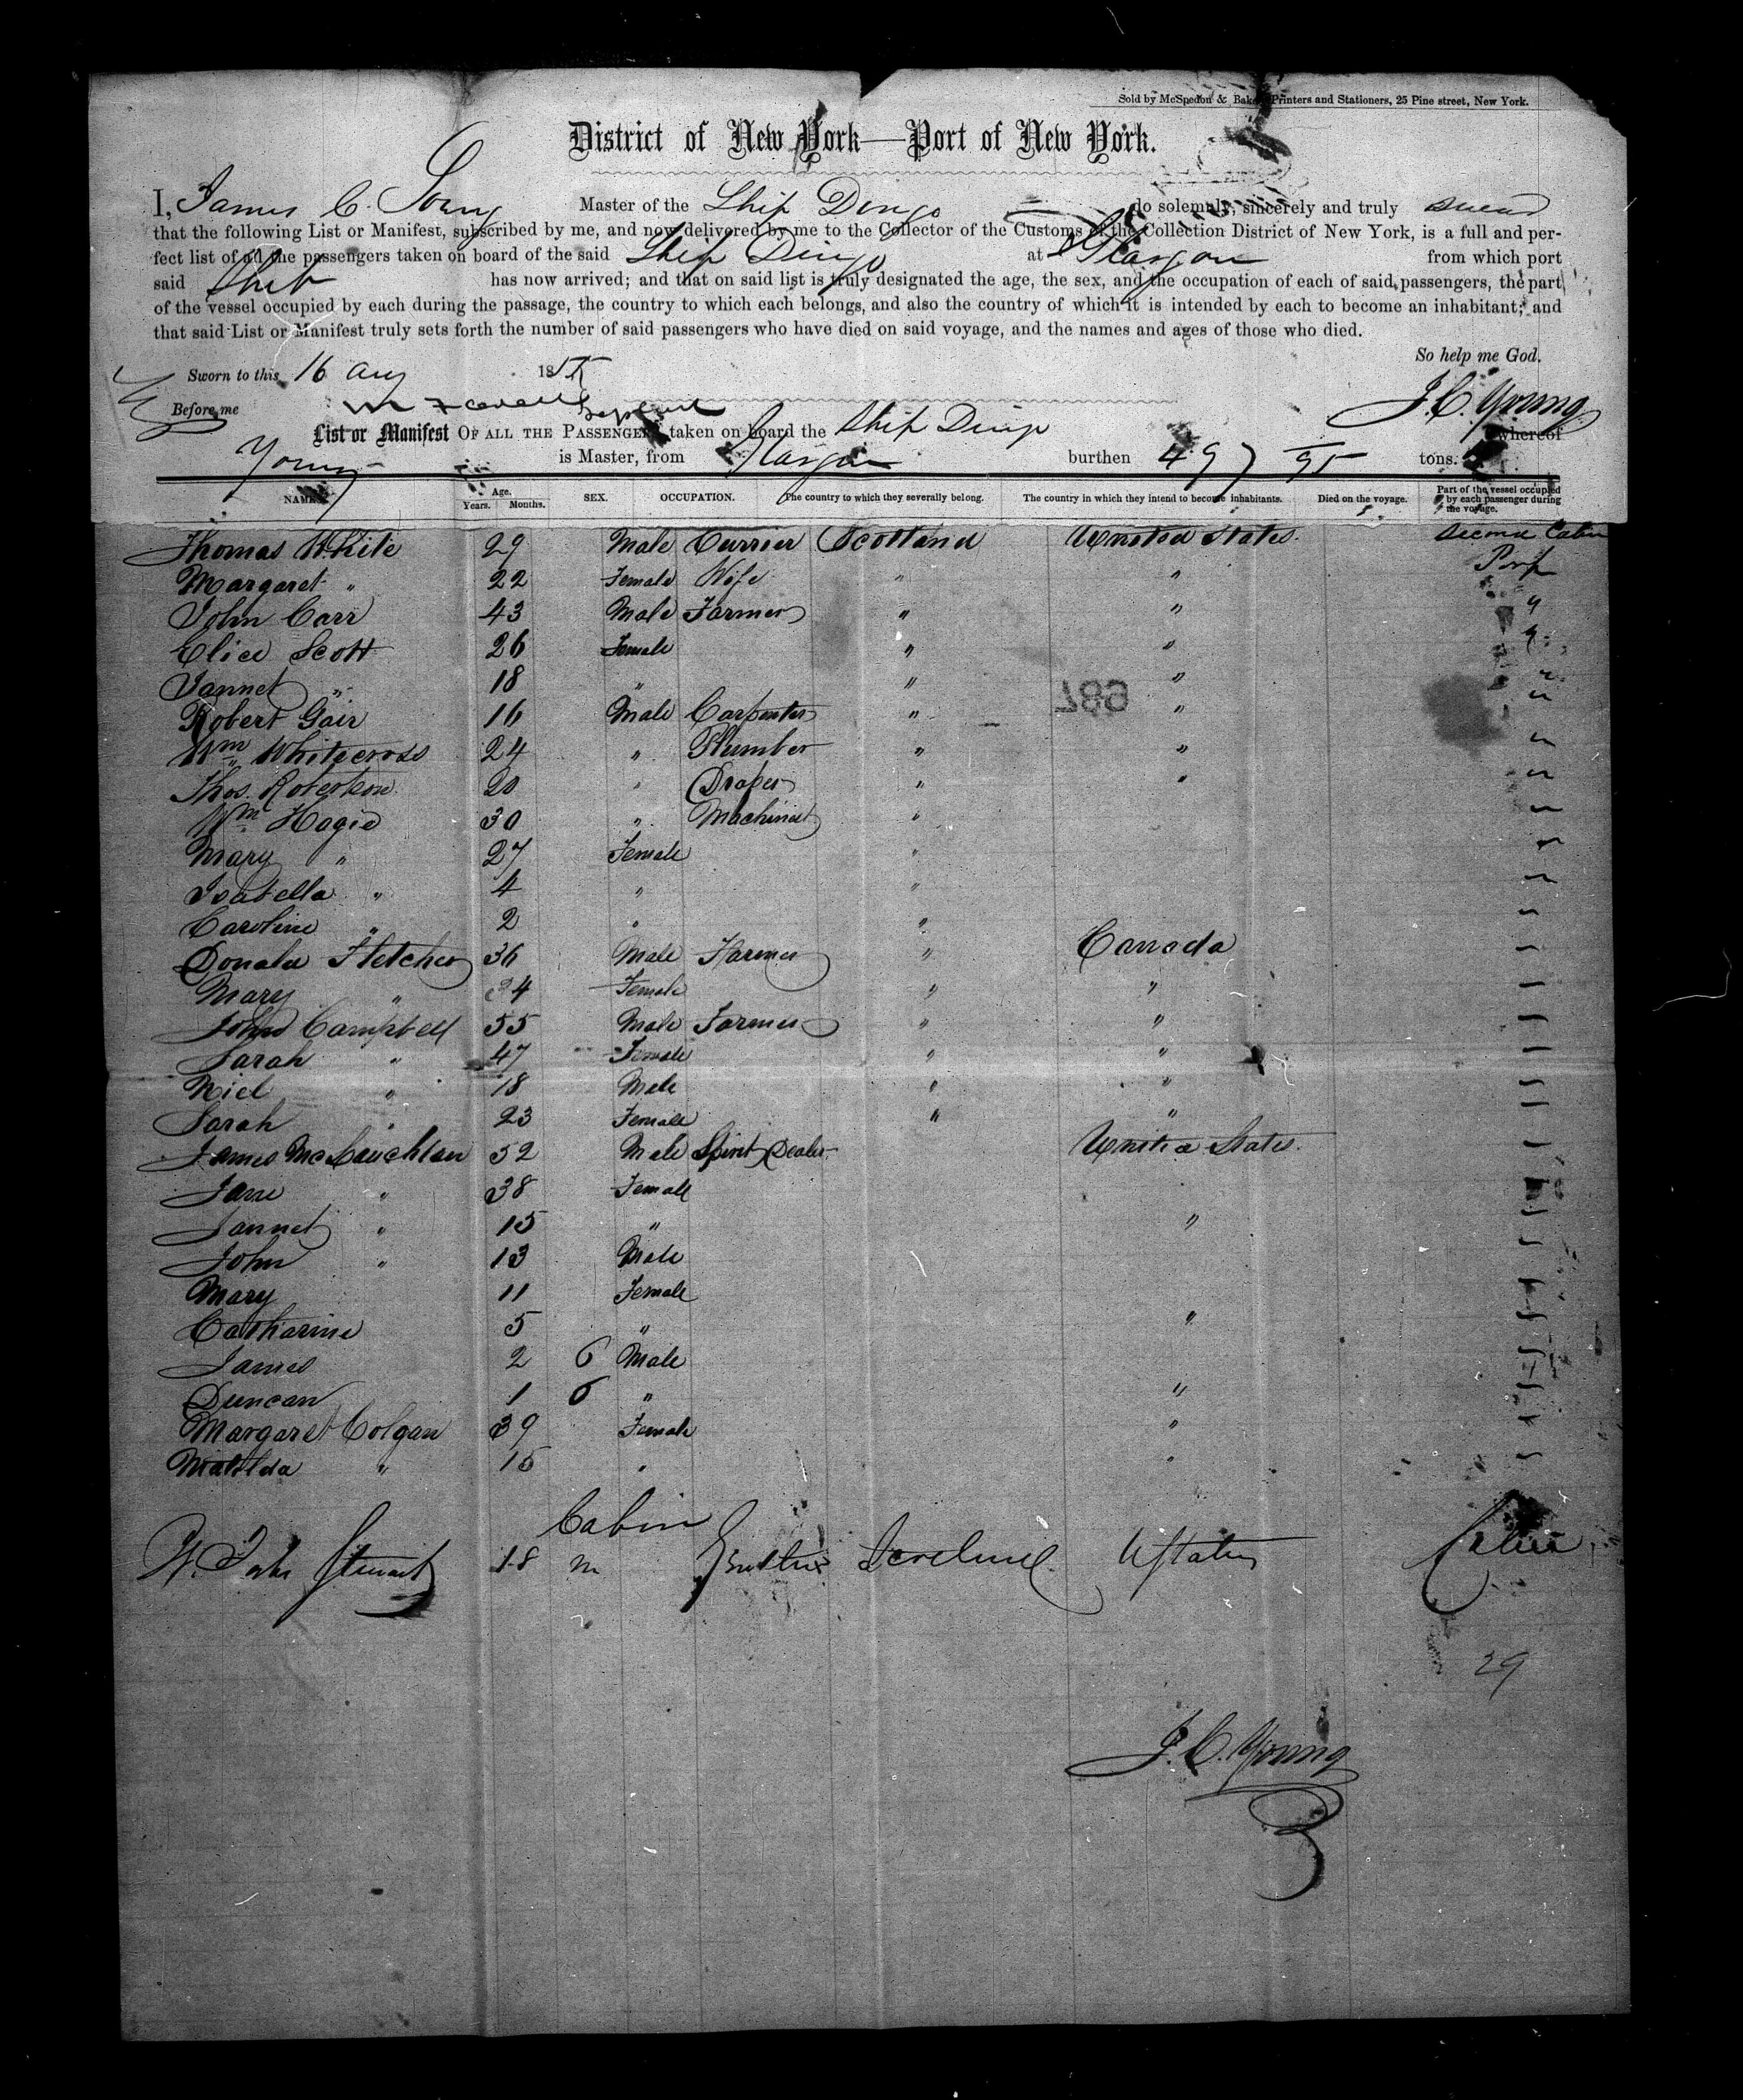 Sold by McSpedon & Baker, Printers and Stationers, 25 Pine street, New York.
District of New York—Port of New York.
I, James C. Young Master of the Ship Dingo do solemnly, sincerely and truly swear
that the following List or Manifest, subscribed by me, and now delivered by me to the Collector of the Customs of the Collection District of New York, is a full and per-
fect list of all the passengers taken on board of the said Ship Dingo at Glasgow from which port
said Ship has now arrived; and that on said list is truly designated the age, the sex, and the occupation of each of said passengers, the part
of the vessel occupied by each during the passage, the country to which each belongs, and also the country of which it is intended by each to become an inhabitant; and
that said List or Manifest truly sets forth the number of said passengers who have died on said voyage, and the names and ages of those who died.
So help me God.
Sworn to this 16 Aug 185
Before me
J. C. Young
List or Manifest OF ALL THE PASSENGERS taken on board the Ship Dingo whereof
Young is Master, from Glasgow burthen 497 95 tons.
NAMES. Age. Years. Months. SEX. OCCUPATION. The country to which they severally belong. The country in which they intend to become inhabitants. Died on the voyage. Part of the vessel occupied by each passenger during the voyage.
Thomas White 29 Male Currier Scotland United States Second Cabin
Margaret " 22 Female Wife " "
John Carr 43 Male Farmer " " "
Elice Scott 26 Female " " "
Jannet " 18 " " " "
Robert Gair 16 Male Carpenter " " "
Wm Whitecross 24 " Plumber " " "
Thos. Robertson 20 " Draper " " "
Wm Hagie 30 " Machinist " "
Mary " 27 Female " "
Isabella " 4 " " "
Caroline " 2 " " "
Donald Fletcher 36 Male Farmer " Canada "
Mary " 34 Female " " "
John Campbell 55 Male Farmer " " "
Sarah " 47 Female " " "
Niel " 18 Male " " "
Sarah " 23 Female " " "
James McLauchlan 52 Male Spirit Dealer United States "
Jane " 38 Female "
Jannet " 15 " " "
John " 13 Male "
Mary 11 Female "
Catharine 5 " " "
James 2 6 Male "
Duncan 1 6 " " "
Margaret Colgan 39 Female " "
Matilda " 15 " " "
Cabin
W. John Stewart 18 m UStates Cabin
29
J. C. Young
687